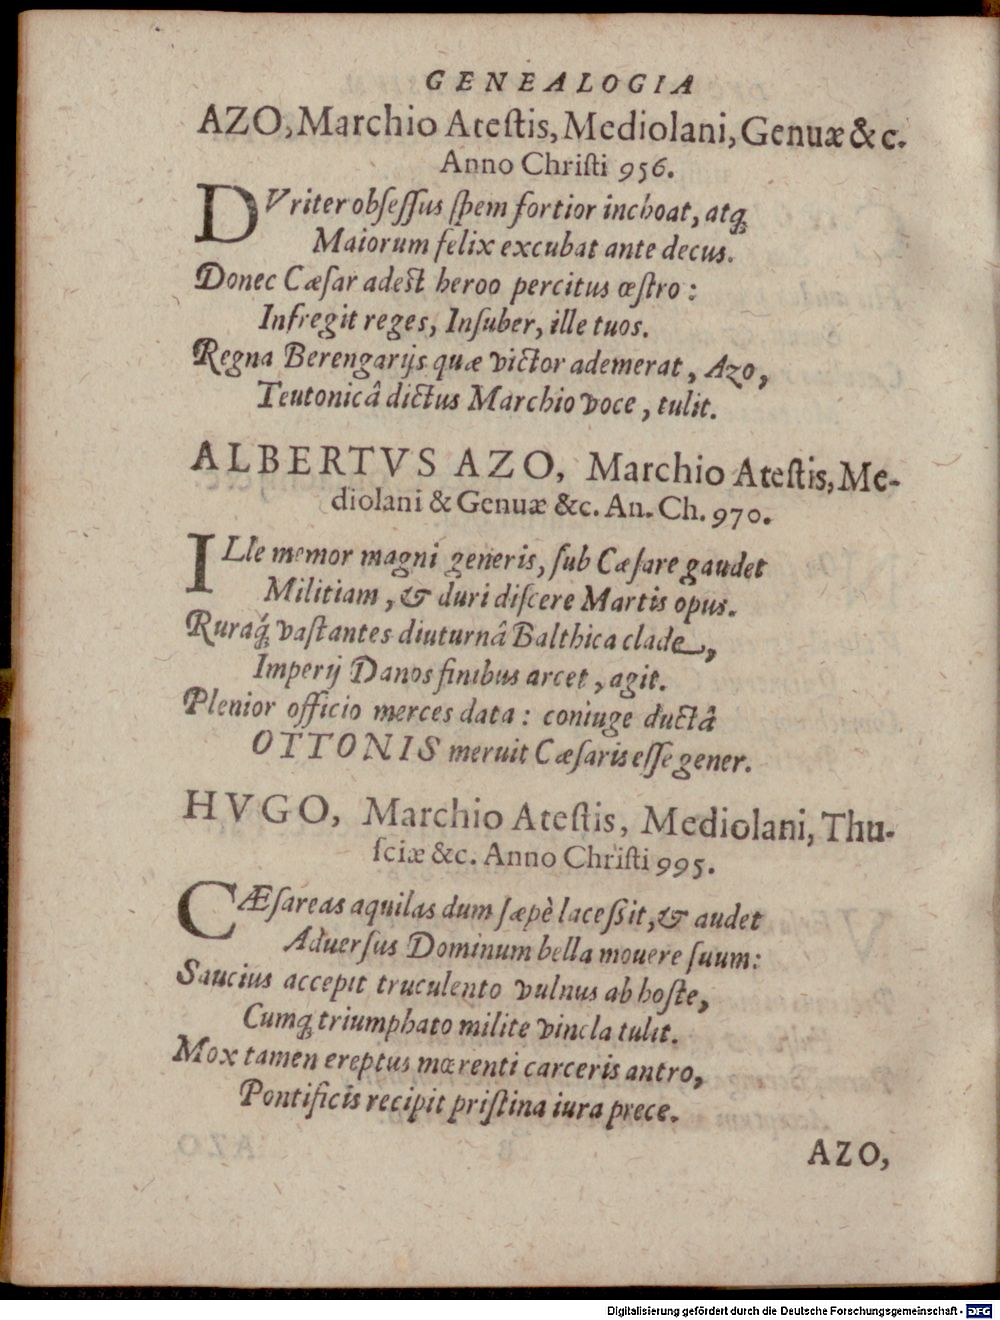 GENEALOGIA
AZO, Marchio Atestis, Mediolani, Genuæ & c.
Anno Christi 956.
DVriter obsessus spem fortior inchoat, atq́;
Maiorum felix excubat ante decus.
Donec Cæsar adest heroo percitus œstro:
Infregit reges, Insuber, ille tuos.
Regna Berengarijs quæ victor ademerat, Azo,
Teutonicâ dictus Marchio voce, tulit.
ALBERTVS AZO, Marchio Atestis, Me-
diolani & Genuæ &c. An. Ch. 970.
ILle memor magni generis, sub Cæsare gaudet
Militiam, & duri discere Martis opus.
Ruraq́; vastantes diuturnâ Balthica clade,
Imperij Danos finibus arcet, agit.
Plenior officio merces data: coniuge ductâ
OTTONIS meruit Cæsaris esse gener.
HVGO, Marchio Atestis, Mediolani, Thu-
sciæ &c. Anno Christi 995.
CÆsareas aquilas dum sæpè lacessit, & audet
Aduersus Dominum bella mouere suum:
Saucius accepit truculento vulnus ab hoste,
Cumq; triumphato milite vincla tulit.
Mox tamen ereptus mœrenti carceris antro,
Pontificis recipit pristina iura prece.
AZO,
Digitalisierung gefördert durch die Deutsche Forschungsgemeinschaft - DFG